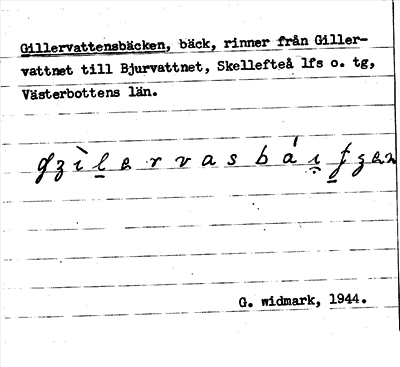 Gillervattensbäcken, bäck, rinner från Giller-
vattnet till Bjurvattnet, Skellefteå lfs o. tg,
Västerbottens län.
G. widmark, 1944.